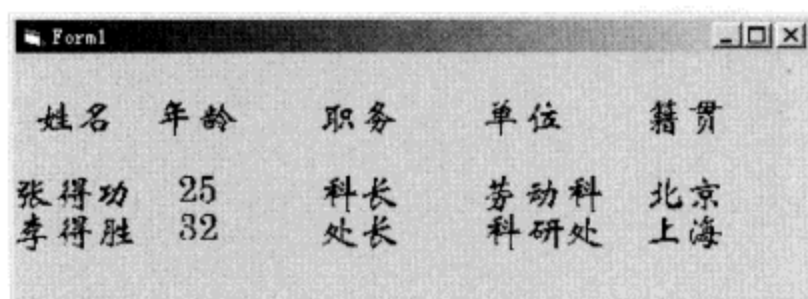 Form1
姓名 年龄 职务 单位 籍贯
张得功 25 科长 劳动科 北京
李得胜 32 处长 科研处 上海